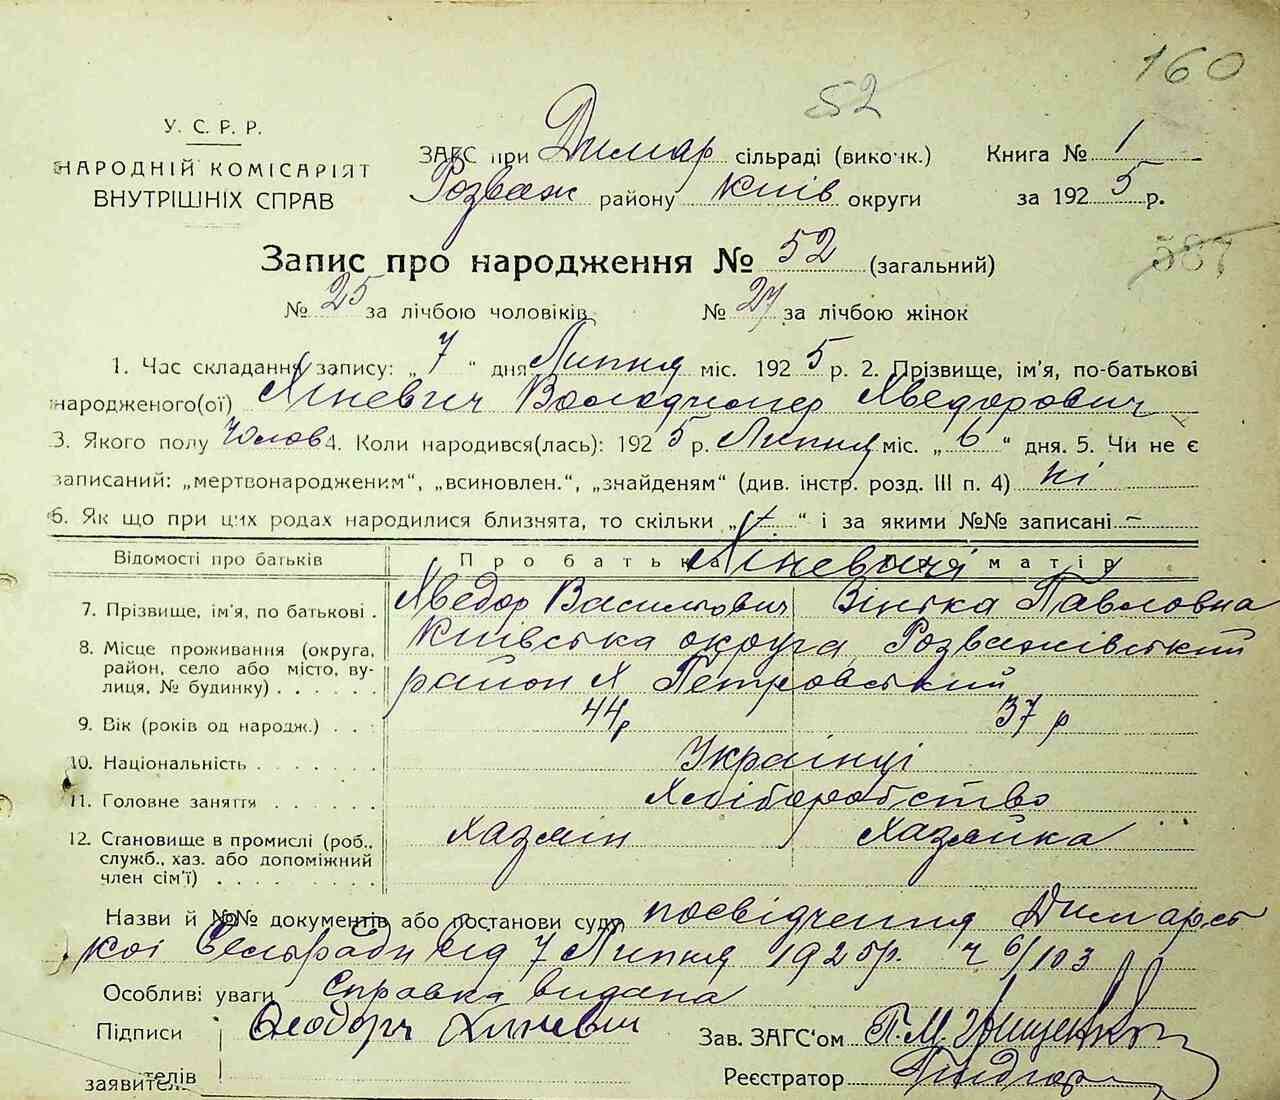 160
52
У. С. Р. Р.
НАРОДНІЙ КОМІСАРІЯТ
ВНУТРІШНІХ СПРАВ
ЗАГС при Димар сільраді (викочк.) Книга № 1
Розваж району Київ округи за 1925 р.
587
Запис про народження № 52 (загальний)
№ 25 за лічбою чоловіків № 27 за лічбою жінок
1. Час складання запису: „ 7 “ дня Липня міс. 1925 р. 2. Прізвище, ім'я, по-батькові
народженого(ої) Хіневич Володимер Хведорович
3. Якого полу Чолов 4. Коли народився(лась): 1925 р. Липня міс. „ 6 “ дня. 5. Чи не є
записаний: „мертвонародженим“, „всиновлен.“, „знайденям“ (див. інстр. розд. III п. 4) ні
6. Як що при цих родах народилися близнята, то скільки „ “ і за якими №№ записані –
Відомості про батьків Про батька матір
Хіневичі
7. Прізвище, ім'я, по батькові . Хведор Васильович Зінька Павловна
8. Місце проживання (округа, Київська округа Розважівський
район, село або місто, ву-
лиця, № будинку) . . . . . . район Х Петровський
9. Вік (років од народж.) . . . 44р 37 р
10. Національність . . . . . . Українці
11. Головне заняття . . . . . . Хліборобство
12. Становище в промислі (роб., Хазяін Хазяйка
служб., хаз. або допоміжний
член сім'ї) . . . . . . . .
Назви й №№ документів або постанови суду посвідчення Димарсь
кої Сельради від 7 Липня 1925р. ч 6/103
Особливі уваги Справка видана
Підписи Феодор Хіневич Зав. ЗАГС'ом П. М.
заявителів Реєстратор